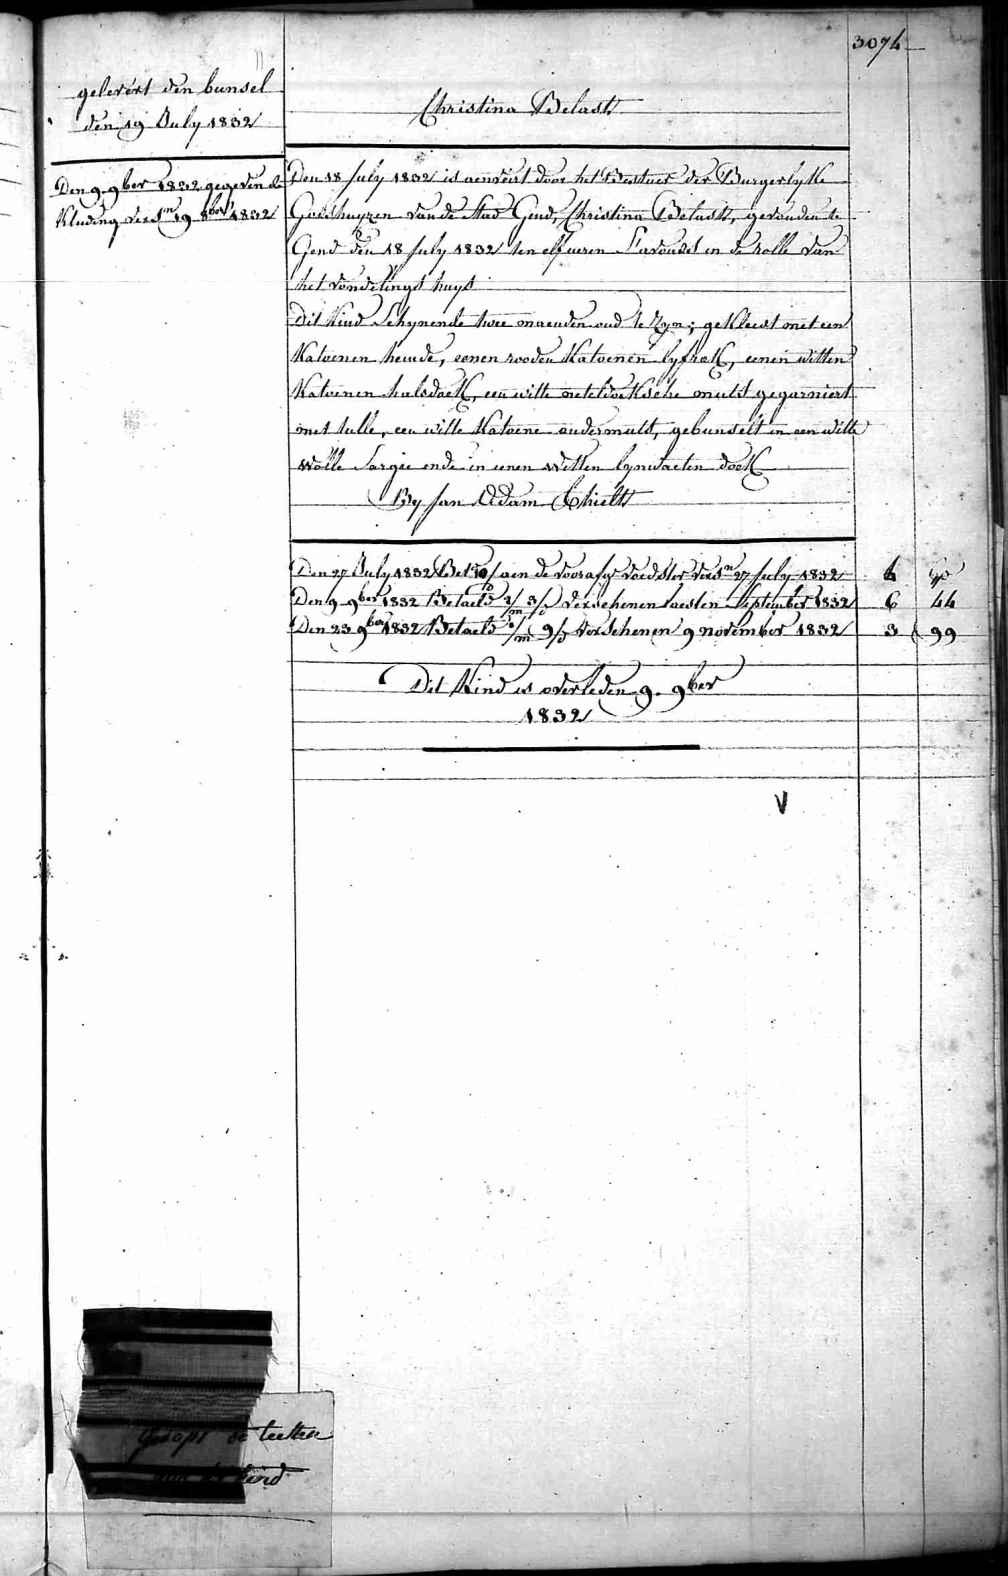 3074
gelevert den bunsel
den 19 July 1832
Den 9. 9ber 1832 gegeven de
Kluding 19 8ber 1832
Christina Belast
Den 18 July 1832 is aenveirt door het Bestuer der Burgerlyke
Godshuyzen van de Stad Gend, Christina Belast, gevonden te
Gend den 18 July 1832 ten elf uren S'avonds in de rolle van
het vondelings huys
dit Kind Schynende twee maenden oud te Zyn; gekleest met een
Katoenen hemde, eenen rooden Katoenen lyfrok, eenen witten
Katoenen halsdoek, een witte neteldoeksche muts gegarniert
met tulle, een witte Katoene ondermuts, gebunselt in een witte
wolle Sargie ende in eenen witten lynwaeten doek
By Jan Adam Chielt
Den 27 July 1832 Bet aen de voorafg voedster 27 July 1832 4
Den 9 9ber 1832 Betaelt 2/m 3/d verschenen laesten September 1832 6 44
Den 23 9ber 1832 Betaelt 1/m 9/d verschenen 9 november 1832 3 99
Dit Kind is overleden 9. 9ber
1832
V
teeken
Kind